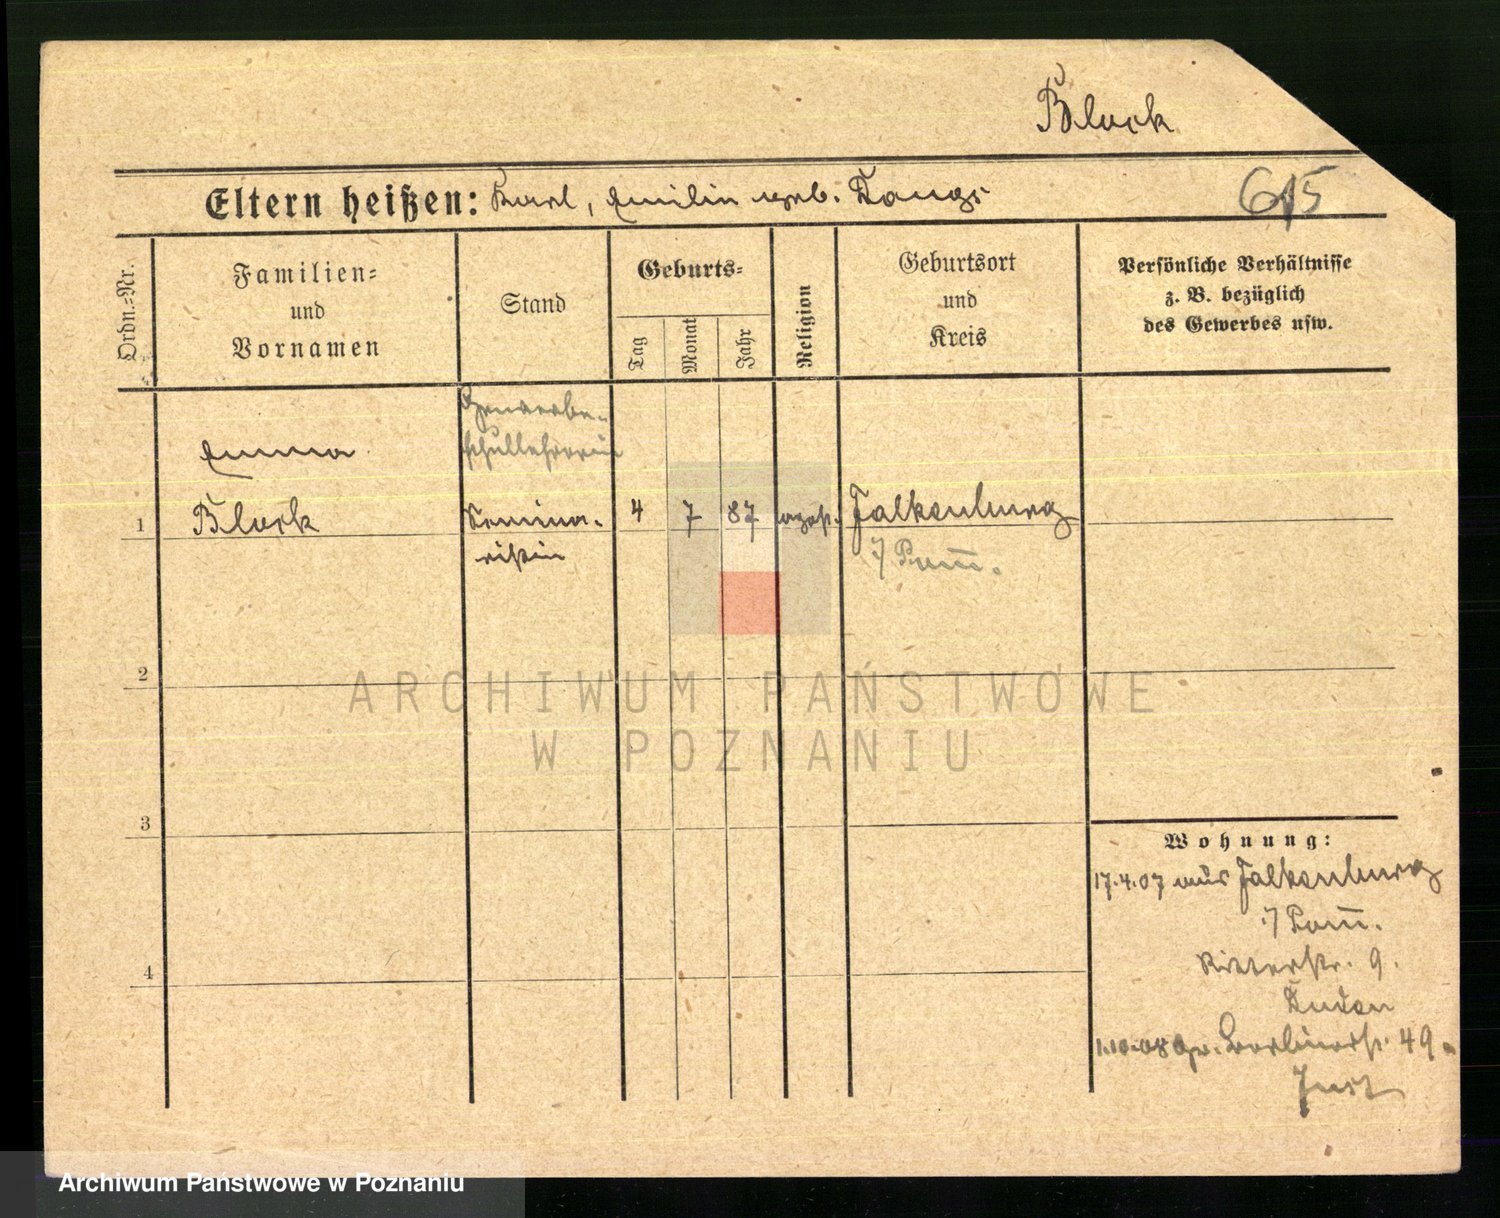 Block
Eltern heißen: Karl, Emilie geb.
615
Ordn.-Nr.
Familien-
und
Vornamen
Stand
Geburts-
Tag
Monat
Jahr
Religion
Geburtsort
und
Kreis
Persönliche Verhältnisse
z. B. bezüglich
des Gewerbes usw.
Gewerbe-
schullehrerin
Emma
1 Block Semina- 4 7 87 Falkenburg
ristin i/ Pom̅.
2
ARCHIWUM PAŃSTWOWE
W POZNANIU
3
4
Wohnung:
17.4.07 aus Falkenburg
i/ Pom̅.
Ritterstr. 9.
1.10.08 Gr. Berlinerstr. 49
Archiwum Państwowe w Poznaniu